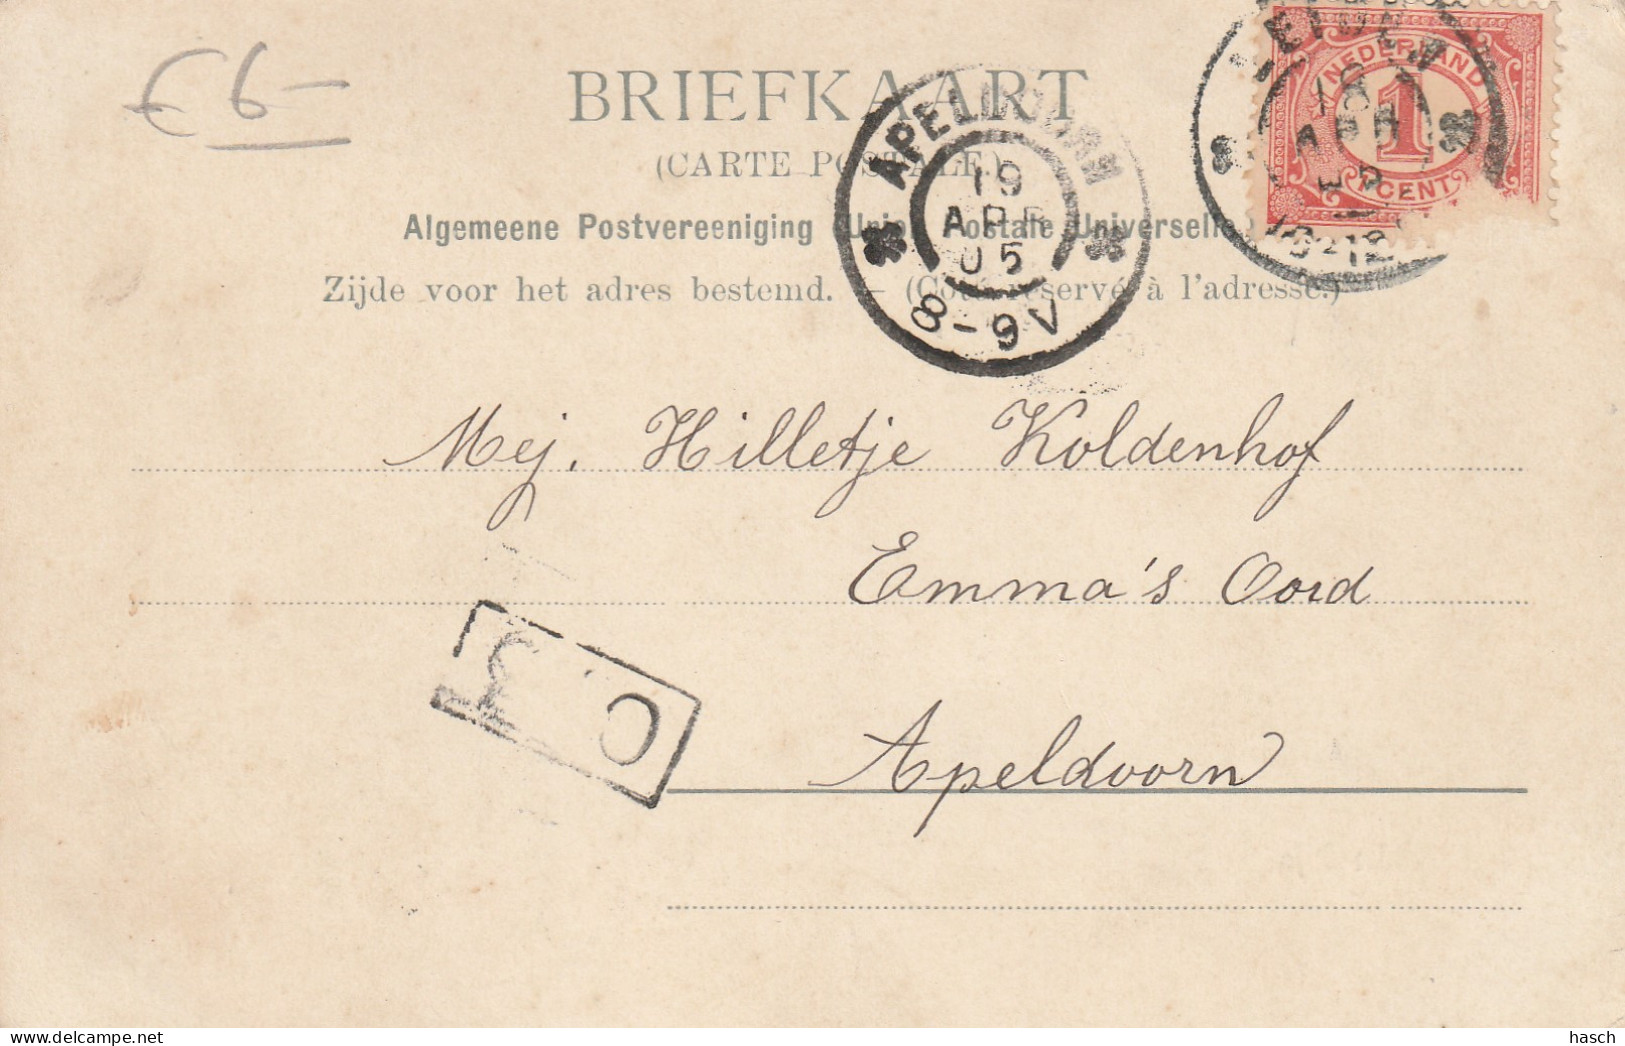 € 6-
BRIEFKAART
(CARTE POSTALE.)
Algemeene Postvereeniging (Union Postale Universelle)
Zijde voor het adres bestemd. — (Côté réservé à l'adresse.)
APELDOORN
19
APR
05
8-9V
NEDERLAND
1
1 CENT
Mej. Hilletje Koldenhof
Emma's Oord
Apeldoorn
hasch